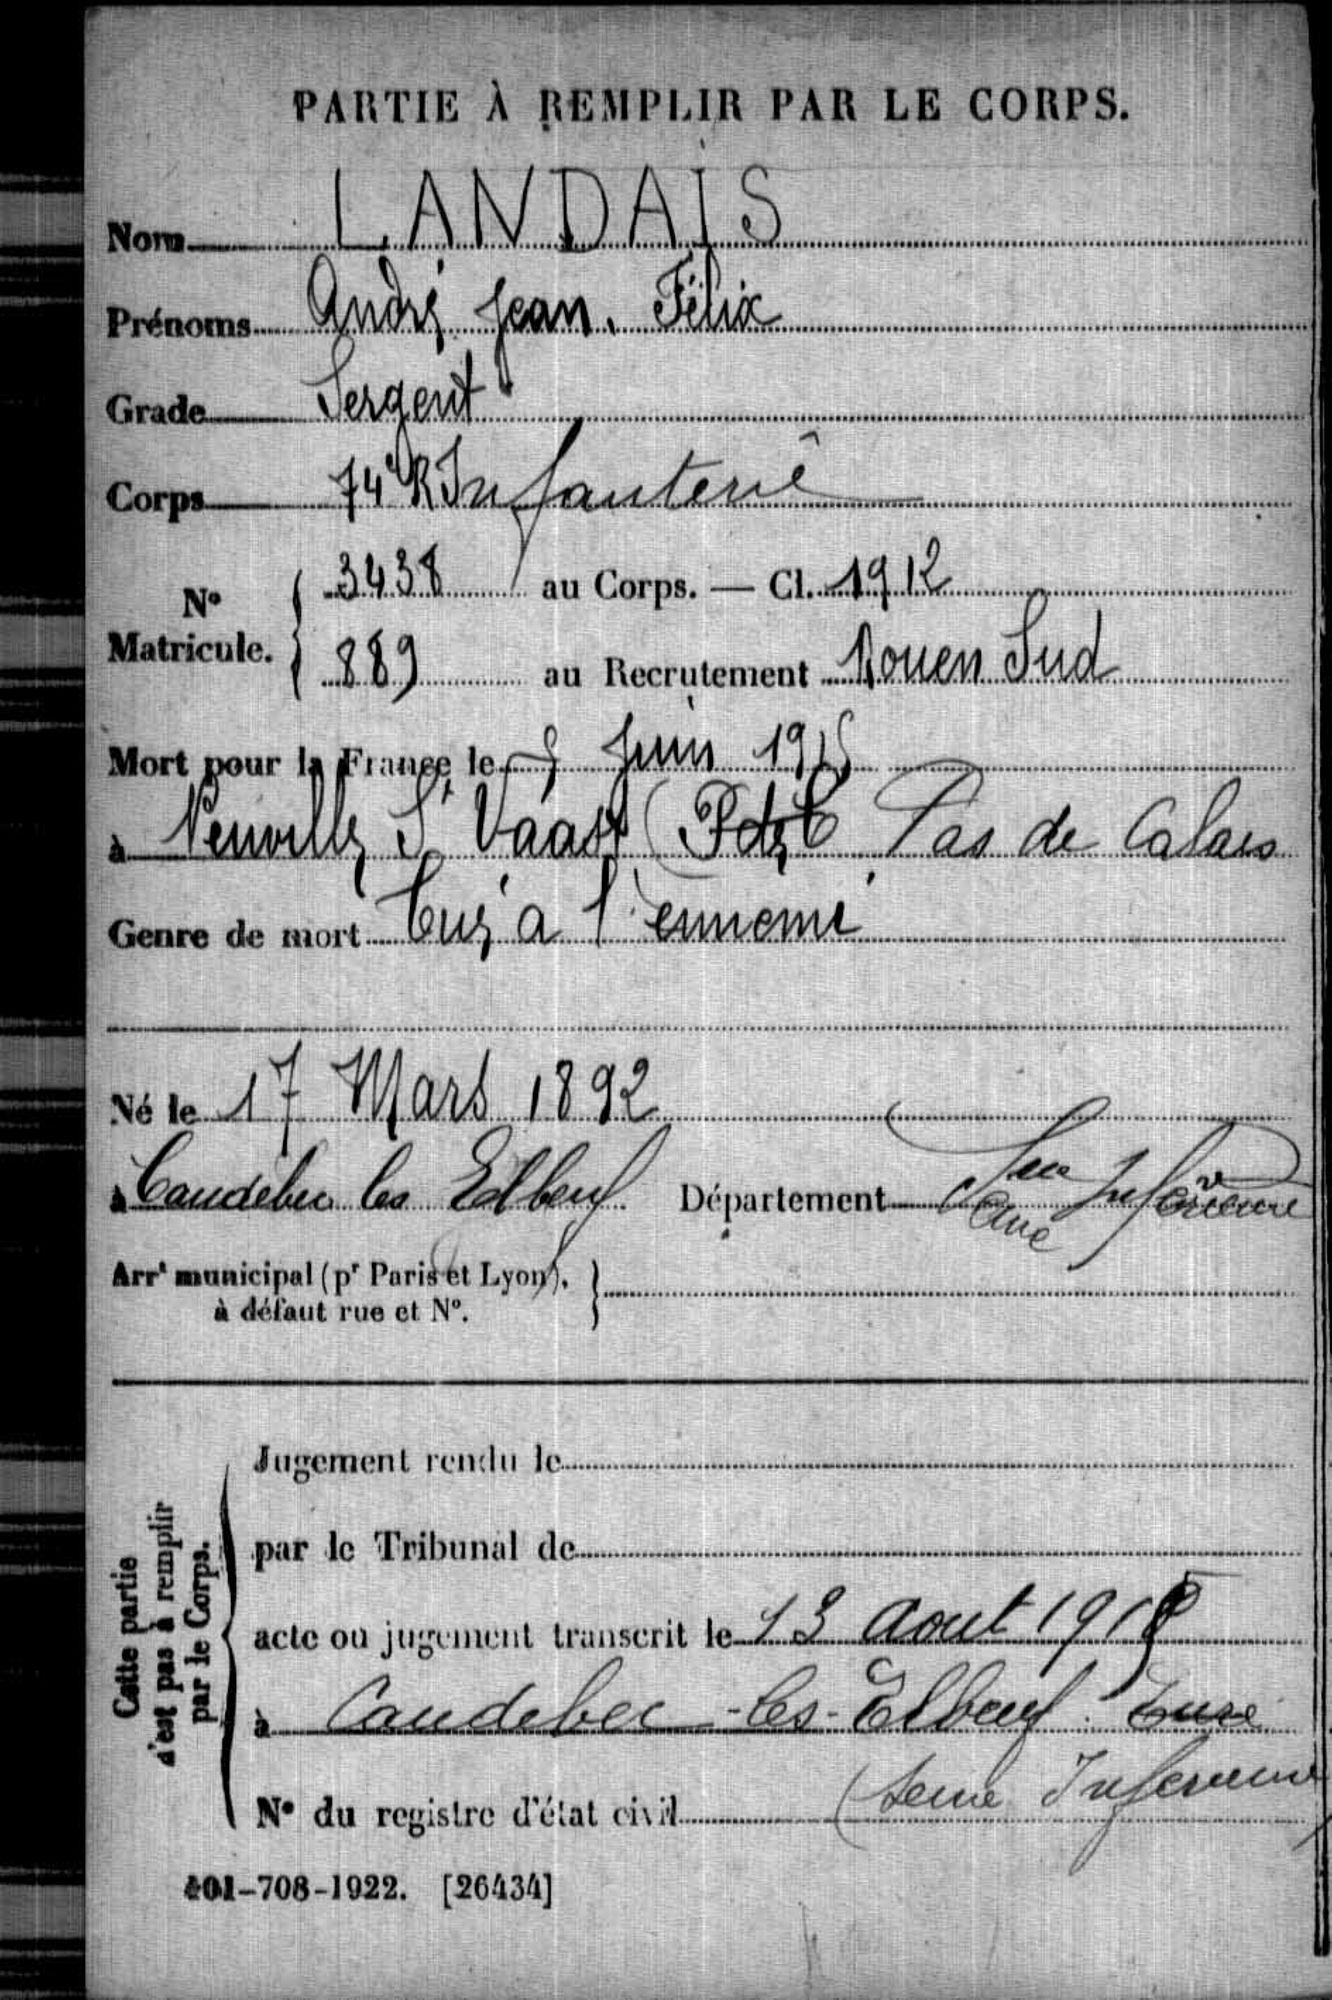 PARTIE À REMPLIR PAR LE CORPS.
Nom LANDAIS
Prénoms André Jean, Félix
Grade Sergent
Corps 74e R Infanterie
N° Matricule. { 3438 au Corps. — Cl. 1912
889 au Recrutement Rouen Sud
Mort pour la France le 5 Juin 1915
à Neuville St Vaast (P de C Pas de Calais
Genre de mort Tué à l'ennemi
Né le 17 Mars 1892
à Caudebec les Elbeuf Département Seine Inférieure
Eure
Arrt municipal (pr Paris et Lyon), }
à défaut rue et N°.
Cette partie
n'est pas à remplir
par le Corps.
Jugement rendu le
par le Tribunal de
acte ou jugement transcrit le 13 Aout 1915
à Caudebec-les-Elbeuf. Eure
(Seine Inferieure
N° du registre d'état civil
401-708-1922. [26434]